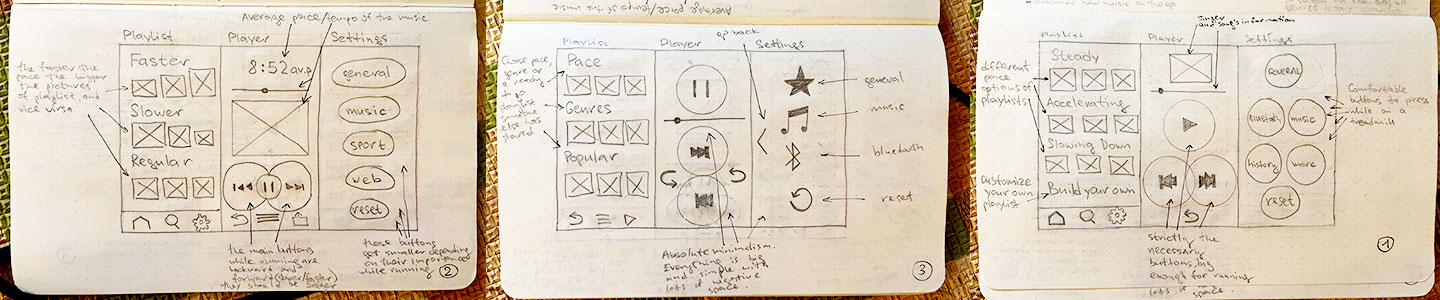 Average pace/tempo of the music
Playlist
Player
Settings
the faster the
pace the bigger
the pictures
of playlist and
vice versa
Faster
Slower
Regular
8:52 av.p
general
music
sport
web
reset
the main buttons
while running are
backward and
forward (slower/faster)
they should be bigger
these buttons
get smaller depending
on their importance
while running
2
Average pace/tempo of the music
go back
Playlist
Player
Settings
Choose pace,
genre or
a ready
to go
playlist
someone
else has
shared
Pace
Genres
Popular
general
music
bluetooth
reset
Absolute minimalism.
Everything is big
and simple with
lots of negative
space.
3
singer
and song's information
Playlist
Player
Settings
different
pace
options of
playlists
Customize
your own
playlist
Steady
Accelerating
Slowing Down
Build your own
GENERAL
bluetooth
music
history
more
reset
Comfortable
buttons to press
while on a
treadmill
strictly the
necessary
buttons, big
enough for running
1